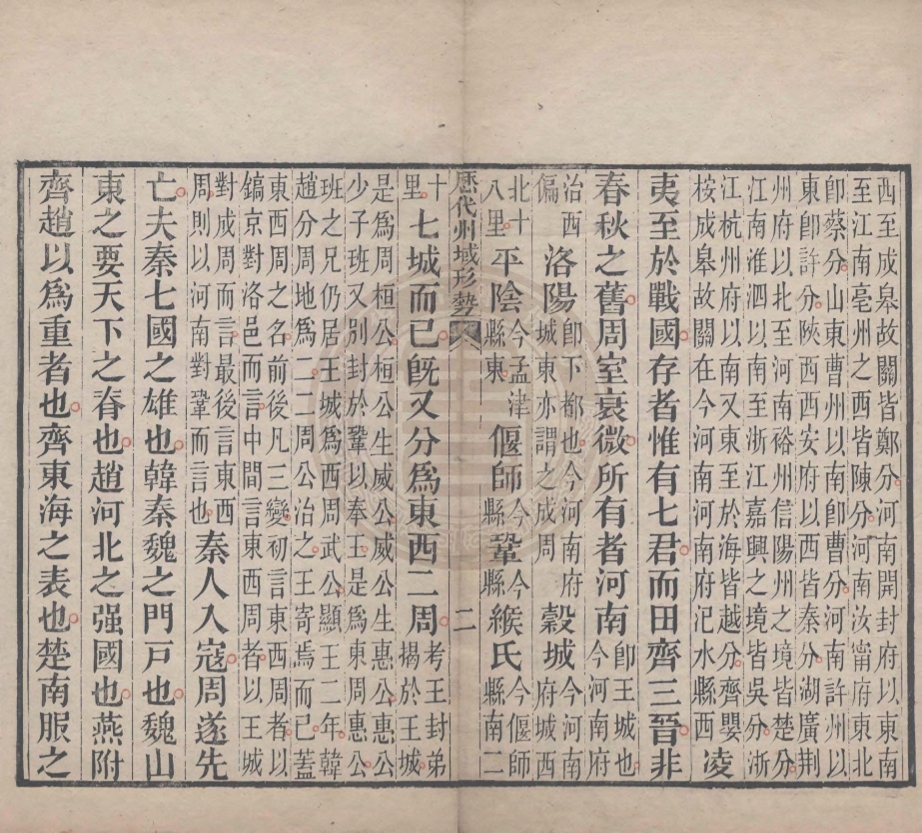 西至成皋故關皆鄭分河南開封府以東南
至江南亳州之西皆陳分河南汝甯府東北
卽蔡分山東曹州以南卽曹分河南許州以
東卽許分陝西西安府以西皆秦分湖廣荆
州府以北至河南裕州信陽州之境皆楚分
江南淮泗以南至浙江嘉興之境皆吳分浙
江杭州府以南又東至於海皆越分齊嬰
桉成皋故關在今河南河南府汜水縣西凌
夷至於戰國存者惟有七君而田齊三晉非
春秋之舊周室衰微所有者河南卽王城也今河南府
治西偏洛陽卽下都也今河南府城東亦謂之成周穀城今河南府城西
北十八里平陰今孟津縣東偃師今縣鞏今縣緱氏今偃師縣南二
歷代州域形勢 二
十里七城而已旣又分爲東西二周考王封弟揭於王城
是爲周桓公桓公生威公威公生惠公惠公
少子班又別封於鞏以奉王是爲東周惠公
班之兄仍居王城爲西周武公顯王二年韓
趙分周地爲二二周公治之王寄焉而已蓋
東西周之名前後凡三變初言東西周者以
鎬京對洛邑而言中間言東西周者以王城
對成周而言最後言東西
周則以河南對鞏而言也秦人入寇周遂先
亡夫秦七國之雄也韓秦魏之門戸也魏山
東之要天下之脊也趙河北之强國也燕附
齊趙以爲重者也齊東海之表也楚南服之